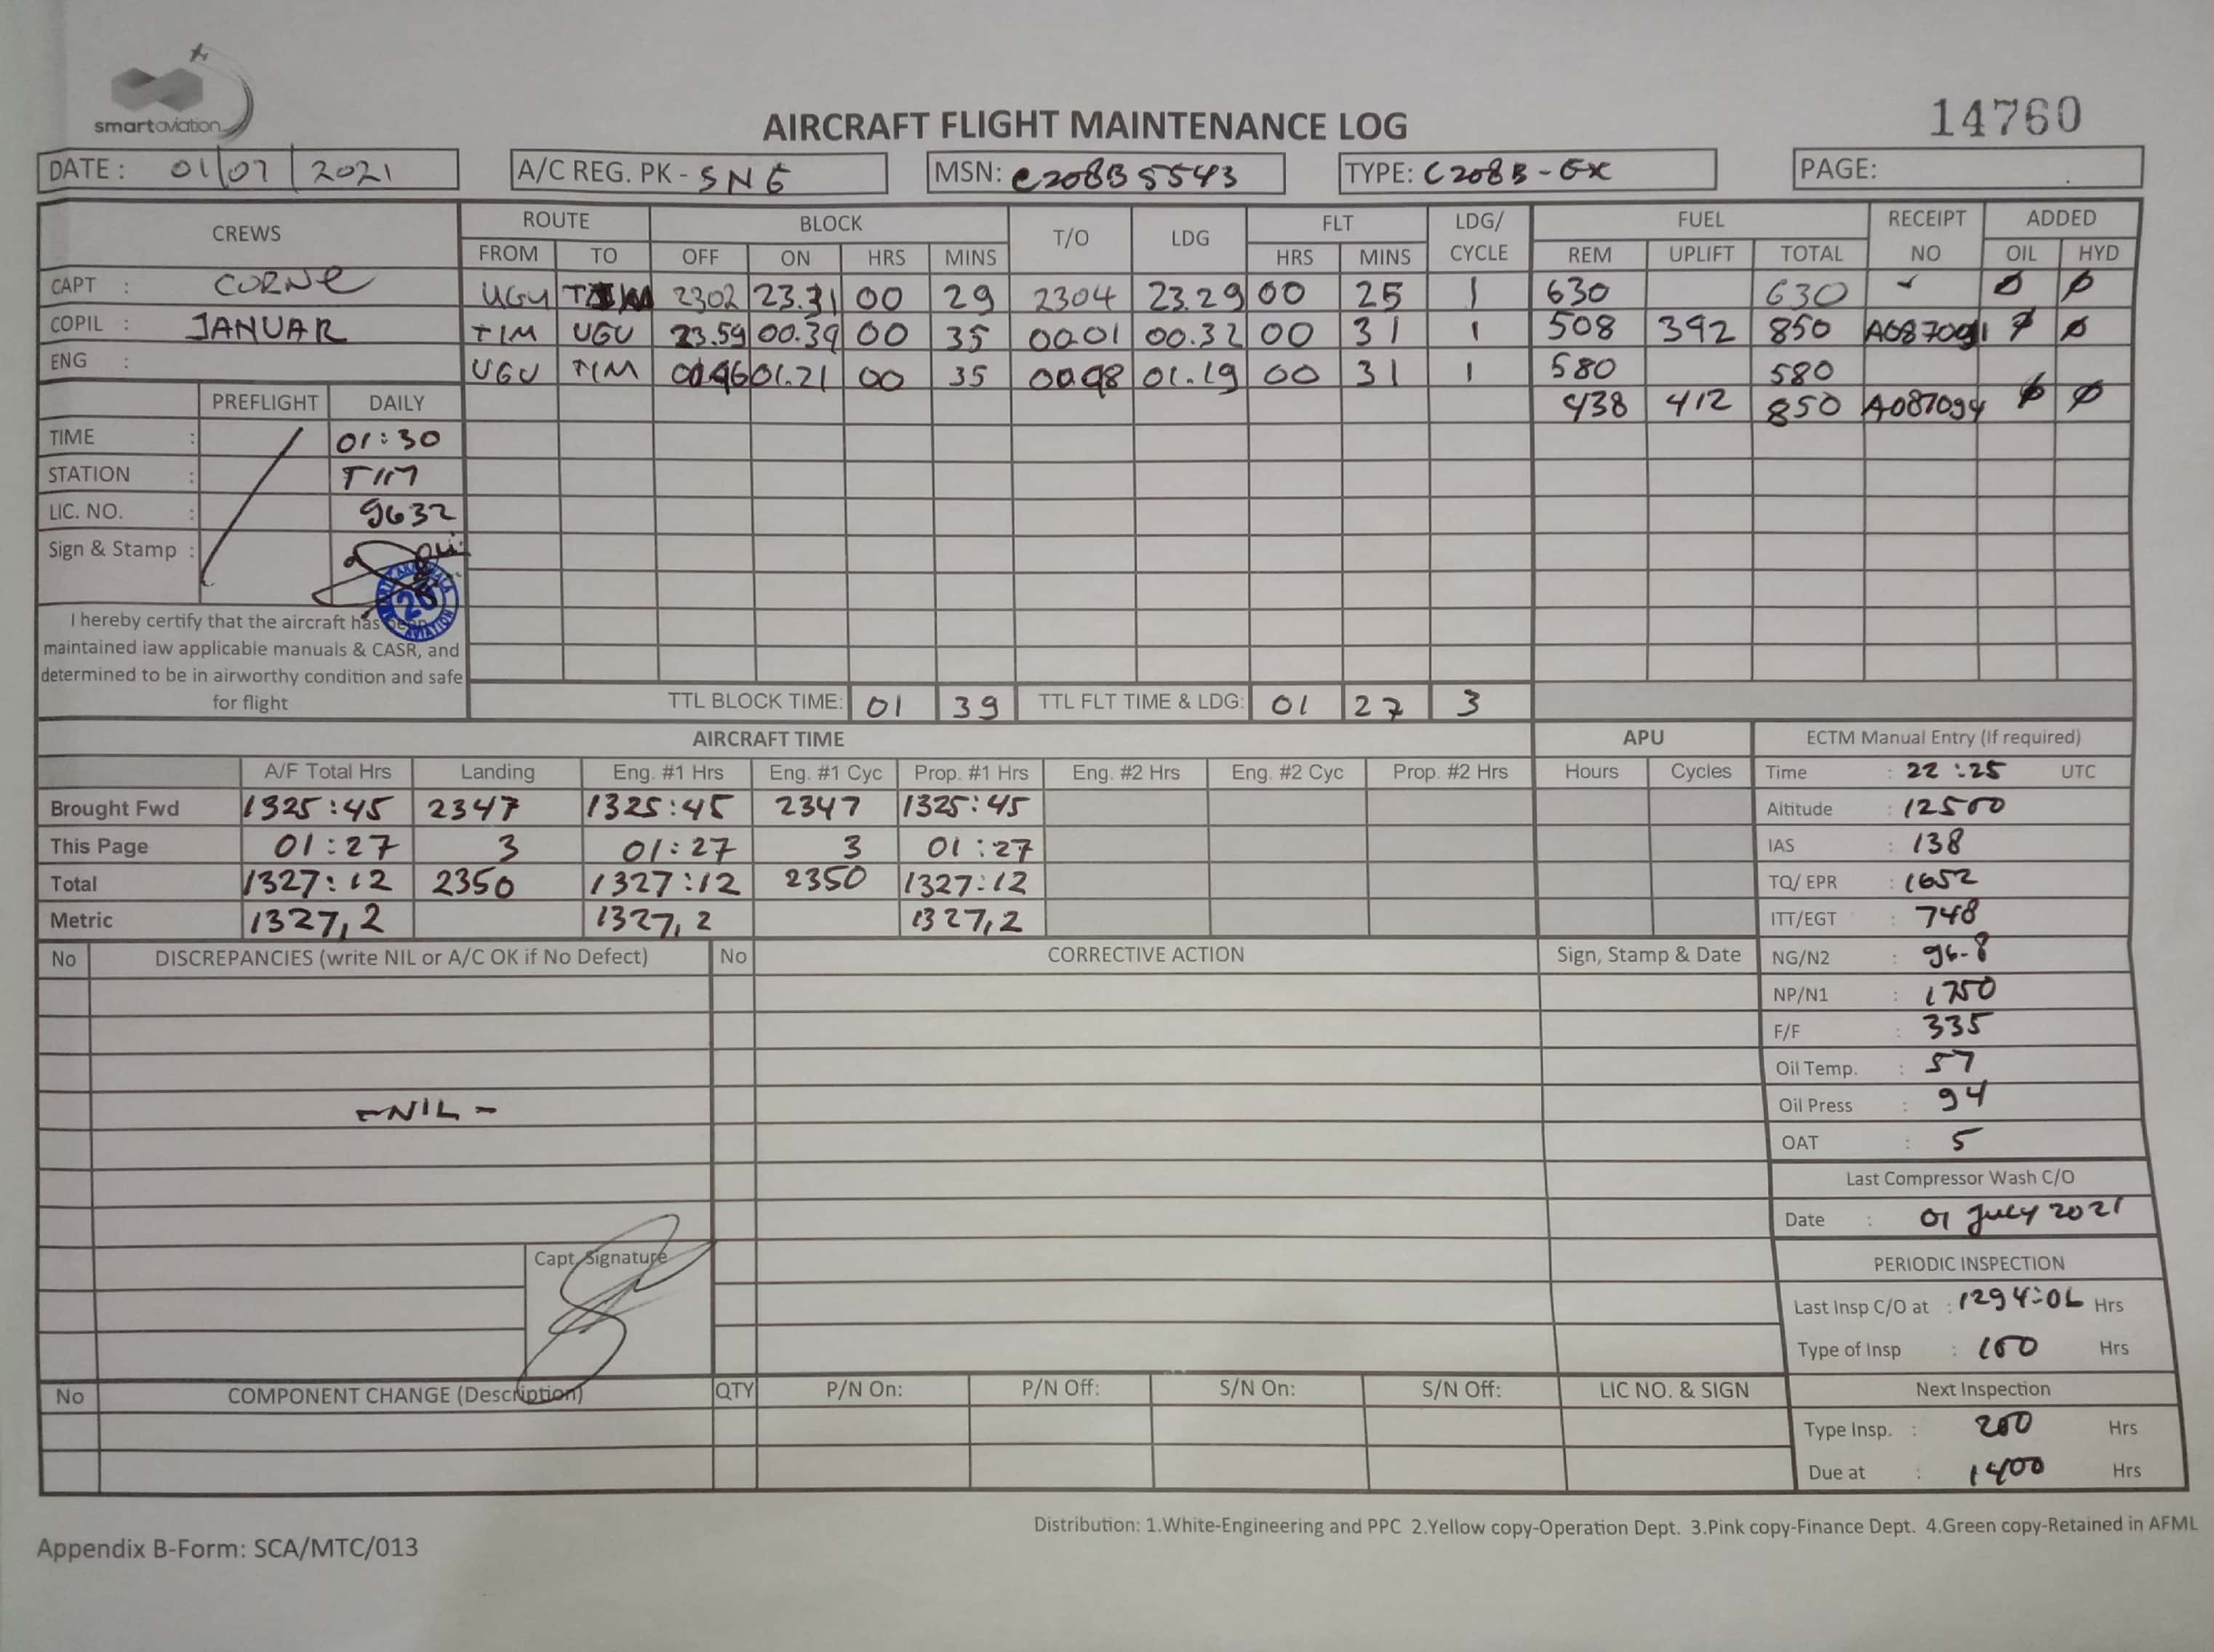 smartaviation
14760
AIRCRAFT FLIGHT MAINTENANCE LOG
DATE : 01/07/2021 A/C REG. PK - SNG MSN: C208B5543 TYPE: C208B-EX PAGE:
CREWS ROUTE BLOCK T/O LDG FLT LDG/CYCLE FUEL RECEIPT NO ADDED
FROM TO OFF ON HRS MINS HRS MINS REM UPLIFT TOTAL OIL HYD
CAPT : CORNE UGU 2302 23.31 00 29 2304 23.29 00 25 1 630 630 Ø Ø
COPIL : JANUAR TIM UGU 23.59 00 35 00.01 00.32 00 31 1 508 392 850 Ø Ø
ENG : UGU TIM 01.21 00 35 01.19 00 31 1 580 580
438 412 850 A087094 Ø Ø
PREFLIGHT DAILY
TIME : 01:30
STATION : TIM
LIC. NO. : 9632
Sign & Stamp :
AVIATION
I hereby certify that the aircraft has been
maintained iaw applicable manuals & CASR, and
determined to be in airworthy condition and safe
for flight
TTL BLOCK TIME: 01 39 TTL FLT TIME & LDG: 01 27 3
AIRCRAFT TIME APU ECTM Manual Entry (If required)
A/F Total Hrs Landing Eng. #1 Hrs Eng. #1 Cyc Prop. #1 Hrs Eng. #2 Hrs Eng. #2 Cyc Prop. #2 Hrs Hours Cycles Time : 22:25 UTC
Brought Fwd 1325:45 2347 1325:45 2347 1325:45 Altitude : 12500
This Page 01:27 3 01:27 3 01:27 IAS : 138
Total 1327:12 2350 1327:12 2350 1327:12 TQ/ EPR : 1652
Metric 1327,2 1327,2 1327,2 ITT/EGT : 748
No DISCREPANCIES (write NIL or A/C OK if No Defect) No CORRECTIVE ACTION Sign, Stamp & Date NG/N2 : 96.8
NP/N1 : 1750
F/F : 335
Oil Temp. : 57
- NIL - Oil Press : 94
OAT : 5
Last Compressor Wash C/O
Date : 01 July 2021
Capt. Signature
PERIODIC INSPECTION
Last Insp C/O at : 1294:06 Hrs
Type of Insp : 100 Hrs
No COMPONENT CHANGE (Description) QTY P/N On: P/N Off: S/N On: S/N Off: LIC NO. & SIGN Next Inspection
Type Insp. : 200 Hrs
Due at : 1400 Hrs
Distribution: 1.White-Engineering and PPC 2.Yellow copy-Operation Dept. 3.Pink copy-Finance Dept. 4.Green copy-Retained in AFML
Appendix B-Form: SCA/MTC/013